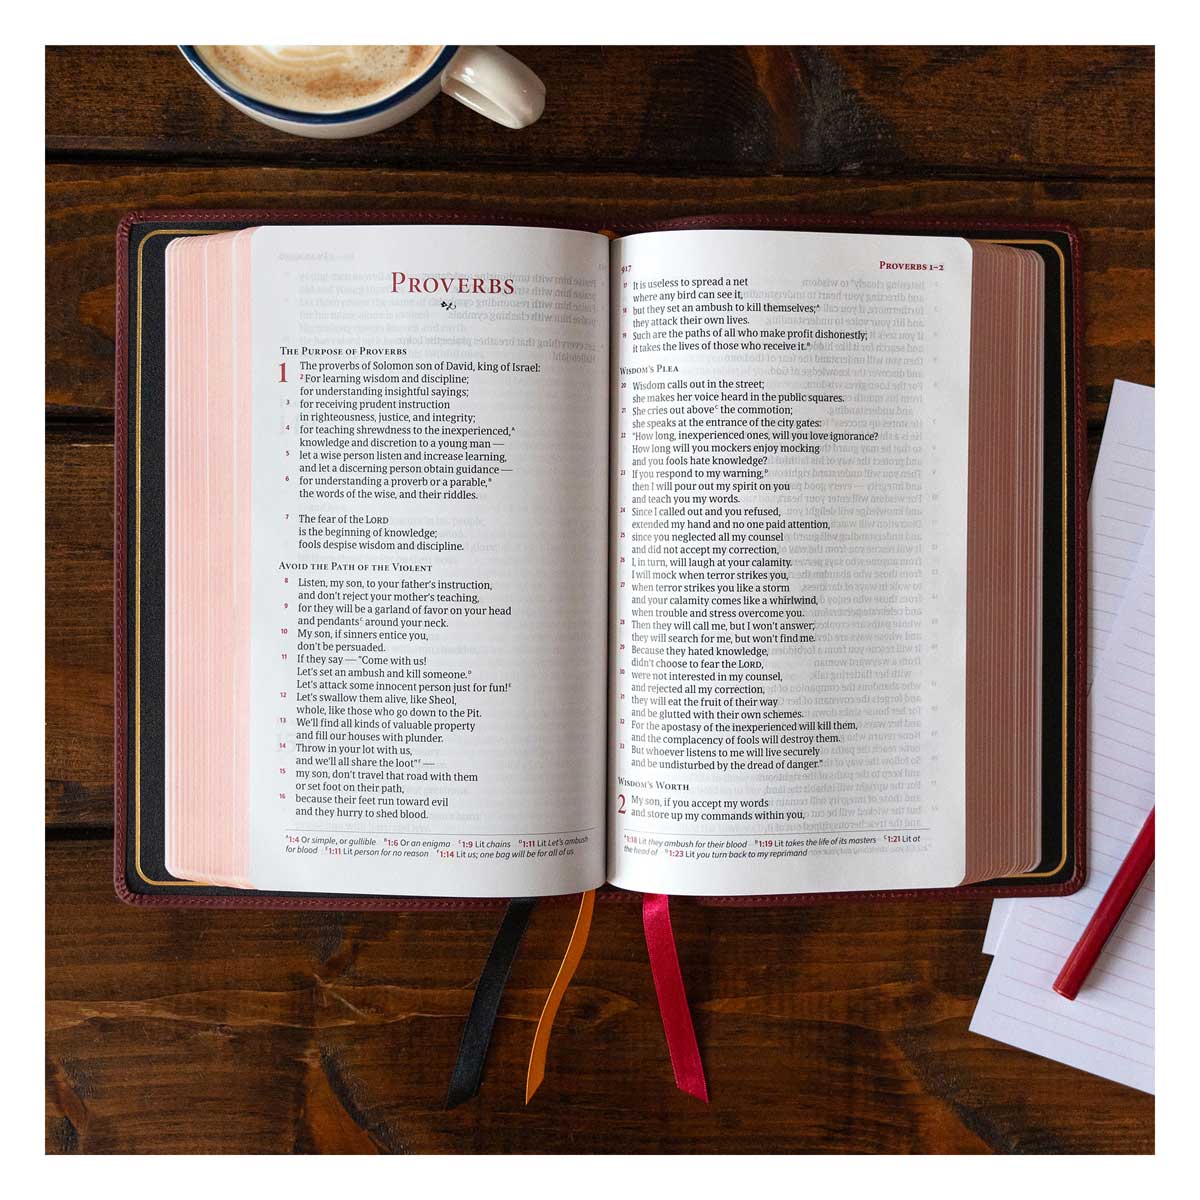 PROVERBS
THE PURPOSE OF PROVERBS
1 The proverbs of Solomon son of David, king of Israel:
2 For learning wisdom and discipline;
for understanding insightful sayings;
3 for receiving prudent instruction
in righteousness, justice, and integrity;
4 for teaching shrewdness to the inexperienced,A
knowledge and discretion to a young man —
5 let a wise person listen and increase learning,
and let a discerning person obtain guidance —
6 for understanding a proverb or a parable,B
the words of the wise, and their riddles.
7 The fear of the LORD
is the beginning of knowledge;
fools despise wisdom and discipline.
AVOID THE PATH OF THE VIOLENT
8 Listen, my son, to your father's instruction,
and don't reject your mother's teaching,
9 for they will be a garland of favor on your head
and pendantsC around your neck.
10 My son, if sinners entice you,
don't be persuaded.
11 If they say — "Come with us!
Let's set an ambush and kill someone.D
Let's attack some innocent person just for fun!E
12 Let's swallow them alive, like Sheol,
whole, like those who go down to the Pit.
13 We'll find all kinds of valuable property
and fill our houses with plunder.
14 Throw in your lot with us,
and we'll all share the loot"F —
15 my son, don't travel that road with them
or set foot on their path,
16 because their feet run toward evil
and they hurry to shed blood.
A1:4 Or simple, or gullible B1:6 Or an enigma C1:9 Lit chains D1:11 Lit Let's ambush
for blood E1:11 Lit person for no reason F1:14 Lit us; one bag will be for all of us
917 PROVERBS 1–2
17 It is useless to spread a net
where any bird can see it,
18 but they set an ambush to kill themselves;A
they attack their own lives.
19 Such are the paths of all who make profit dishonestly;
it takes the lives of those who receive it.B
WISDOM'S PLEA
20 Wisdom calls out in the street;
she makes her voice heard in the public squares.
21 She cries out aboveC the commotion;
she speaks at the entrance of the city gates:
22 "How long, inexperienced ones, will you love ignorance?
How long will you mockers enjoy mocking
and you fools hate knowledge?
23 If you respond to my warning,D
then I will pour out my spirit on you
and teach you my words.
24 Since I called out and you refused,
extended my hand and no one paid attention,
25 since you neglected all my counsel
and did not accept my correction,
26 I, in turn, will laugh at your calamity.
I will mock when terror strikes you,
27 when terror strikes you like a storm
and your calamity comes like a whirlwind,
when trouble and stress overcome you.
28 Then they will call me, but I won't answer;
they will search for me, but won't find me.
29 Because they hated knowledge,
didn't choose to fear the LORD,
30 were not interested in my counsel,
and rejected all my correction,
31 they will eat the fruit of their way
and be glutted with their own schemes.
32 For the apostasy of the inexperienced will kill them,
and the complacency of fools will destroy them.
33 But whoever listens to me will live securely
and be undisturbed by the dread of danger."
WISDOM'S WORTH
2 My son, if you accept my words
and store up my commands within you,
A1:18 Lit they ambush for their blood B1:19 Lit takes the life of its masters C1:21 Lit at
the head of D1:23 Lit you turn back to my reprimand